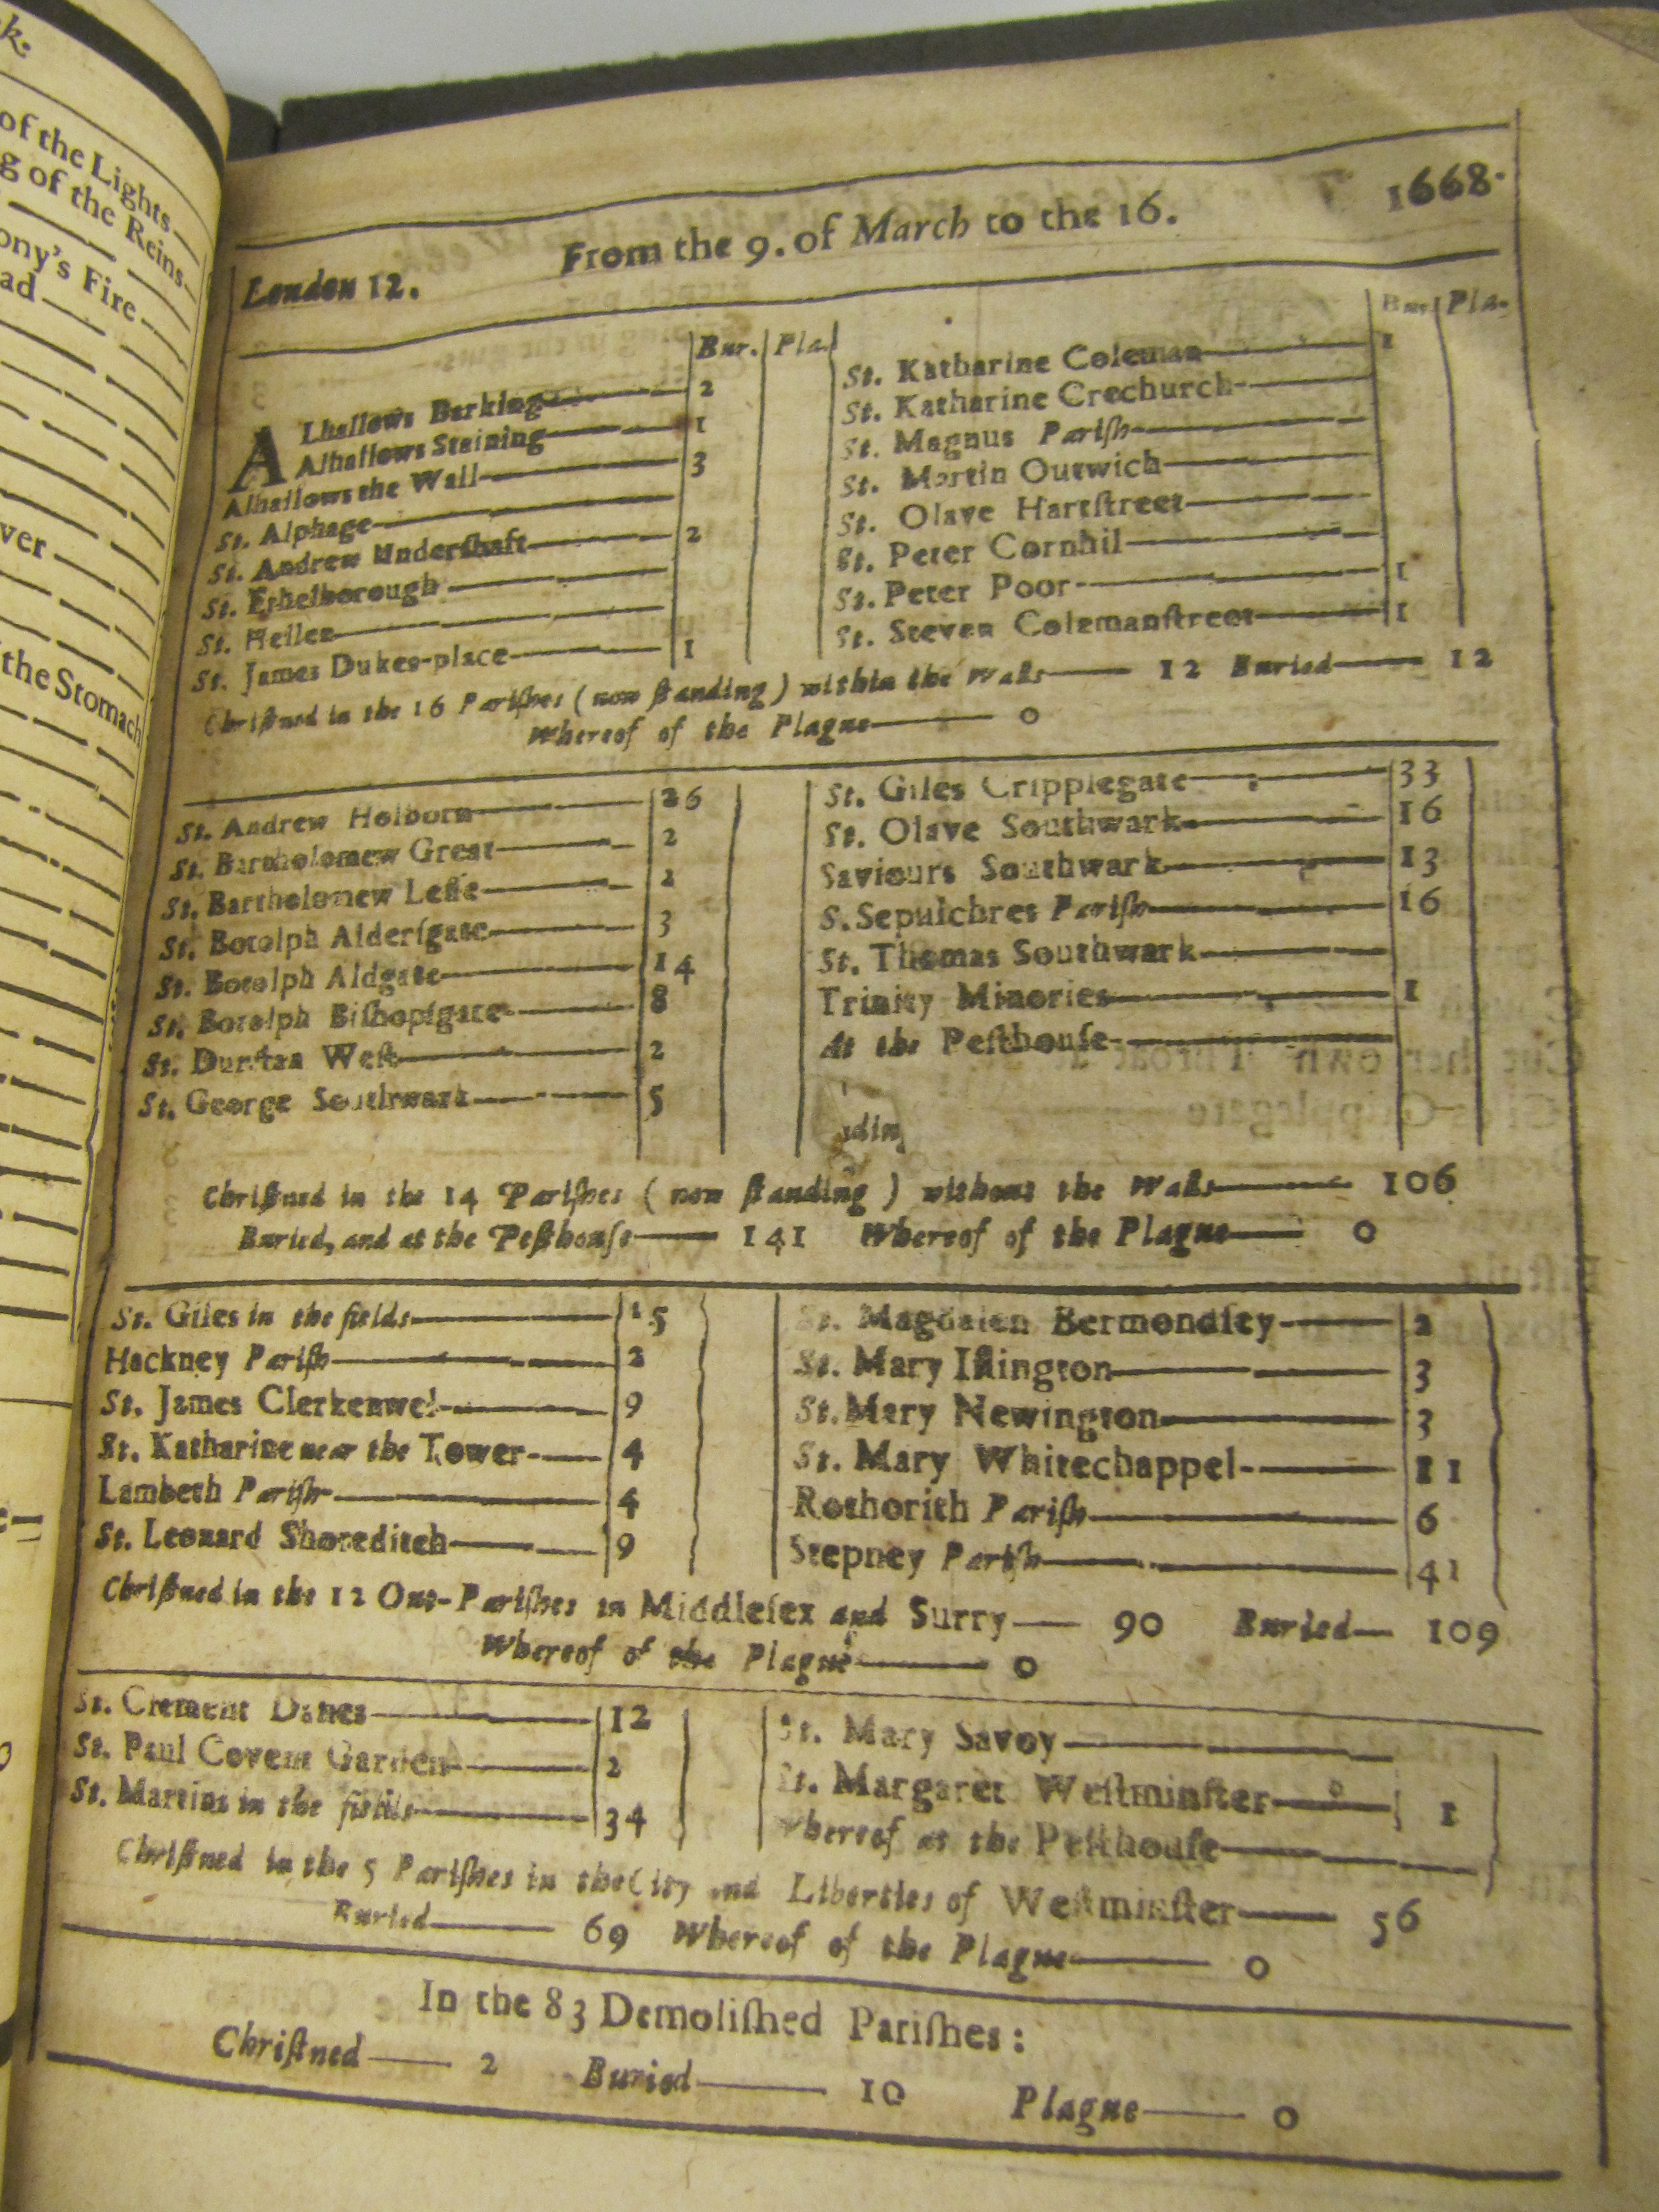 k:
of the Lights
g of the Reins
ony's Fire
ad
ver
the Stomach
London 12. From the 9. of March to the 16. 1668.
Bur. Pla.
ALhallows Barking 2
Alhallows Staining 1
Alhallows the Wall 3
St. Alphage
St. Andrew Underſhaft 2
St. Ethelborough
St. Hellen
St. James Dukes-place 1
Bur. Pla.
St. Katharine Coleman 1
St. Katharine Crechurch
St. Magnus Pariſh
St. Martin Outwich
St. Olave Hartſtreet
St. Peter Cornhil
St. Peter Poor 1
St. Steven Colemanſtreet 1
Chriſtned in the 16 Pariſhes (now ſtanding) within the Walls 12 Buried 12
Whereof of the Plague 0
St. Andrew Holborn 26
St. Bartholomew Great 2
St. Bartholomew Leſſe 2
St. Botolph Alderſgate 3
St. Botolph Aldgate 14
St. Botolph Biſhopſgate 8
St. Dunſtan Weſt 2
St. George Southwark 5
St. Giles Cripplegate 33
St. Olave Southwark 16
Saviours Southwark 13
S. Sepulchres Pariſh 16
St. Thomas Southwark
Trinity Minories 1
At the Peſthouſe
Chriſtned in the 14 Pariſhes (now ſtanding) without the Walls 106
Buried, and at the Peſthouſe 141 Whereof of the Plague 0
St. Giles in the fields 15
Hackney Pariſh 2
St. James Clerkenwel 9
St. Katharine near the Tower 4
Lambeth Pariſh 4
St. Leonard Shoreditch 9
St. Magdalen Bermondſey 2
St. Mary Iſlington 3
St. Mary Newington 3
St. Mary Whitechappel 11
Rothorith Pariſh 6
Stepney Pariſh 41
Chriſtned in the 12 Out-Pariſhes in Middleſex and Surry 90 Buried 109
Whereof of the Plague 0
St. Clement Danes 12
St. Paul Covent Garden 2
St. Martins in the fields 34
St. Mary Savoy
St. Margaret Weſtminſter 1
Whereof at the Peſthouſe
Chriſtned in the 5 Pariſhes in the City and Liberties of Weſtminſter 56
Buried 69 Whereof of the Plague 0
In the 83 Demoliſhed Pariſhes:
Chriſtned 2 Buried 10 Plague 0